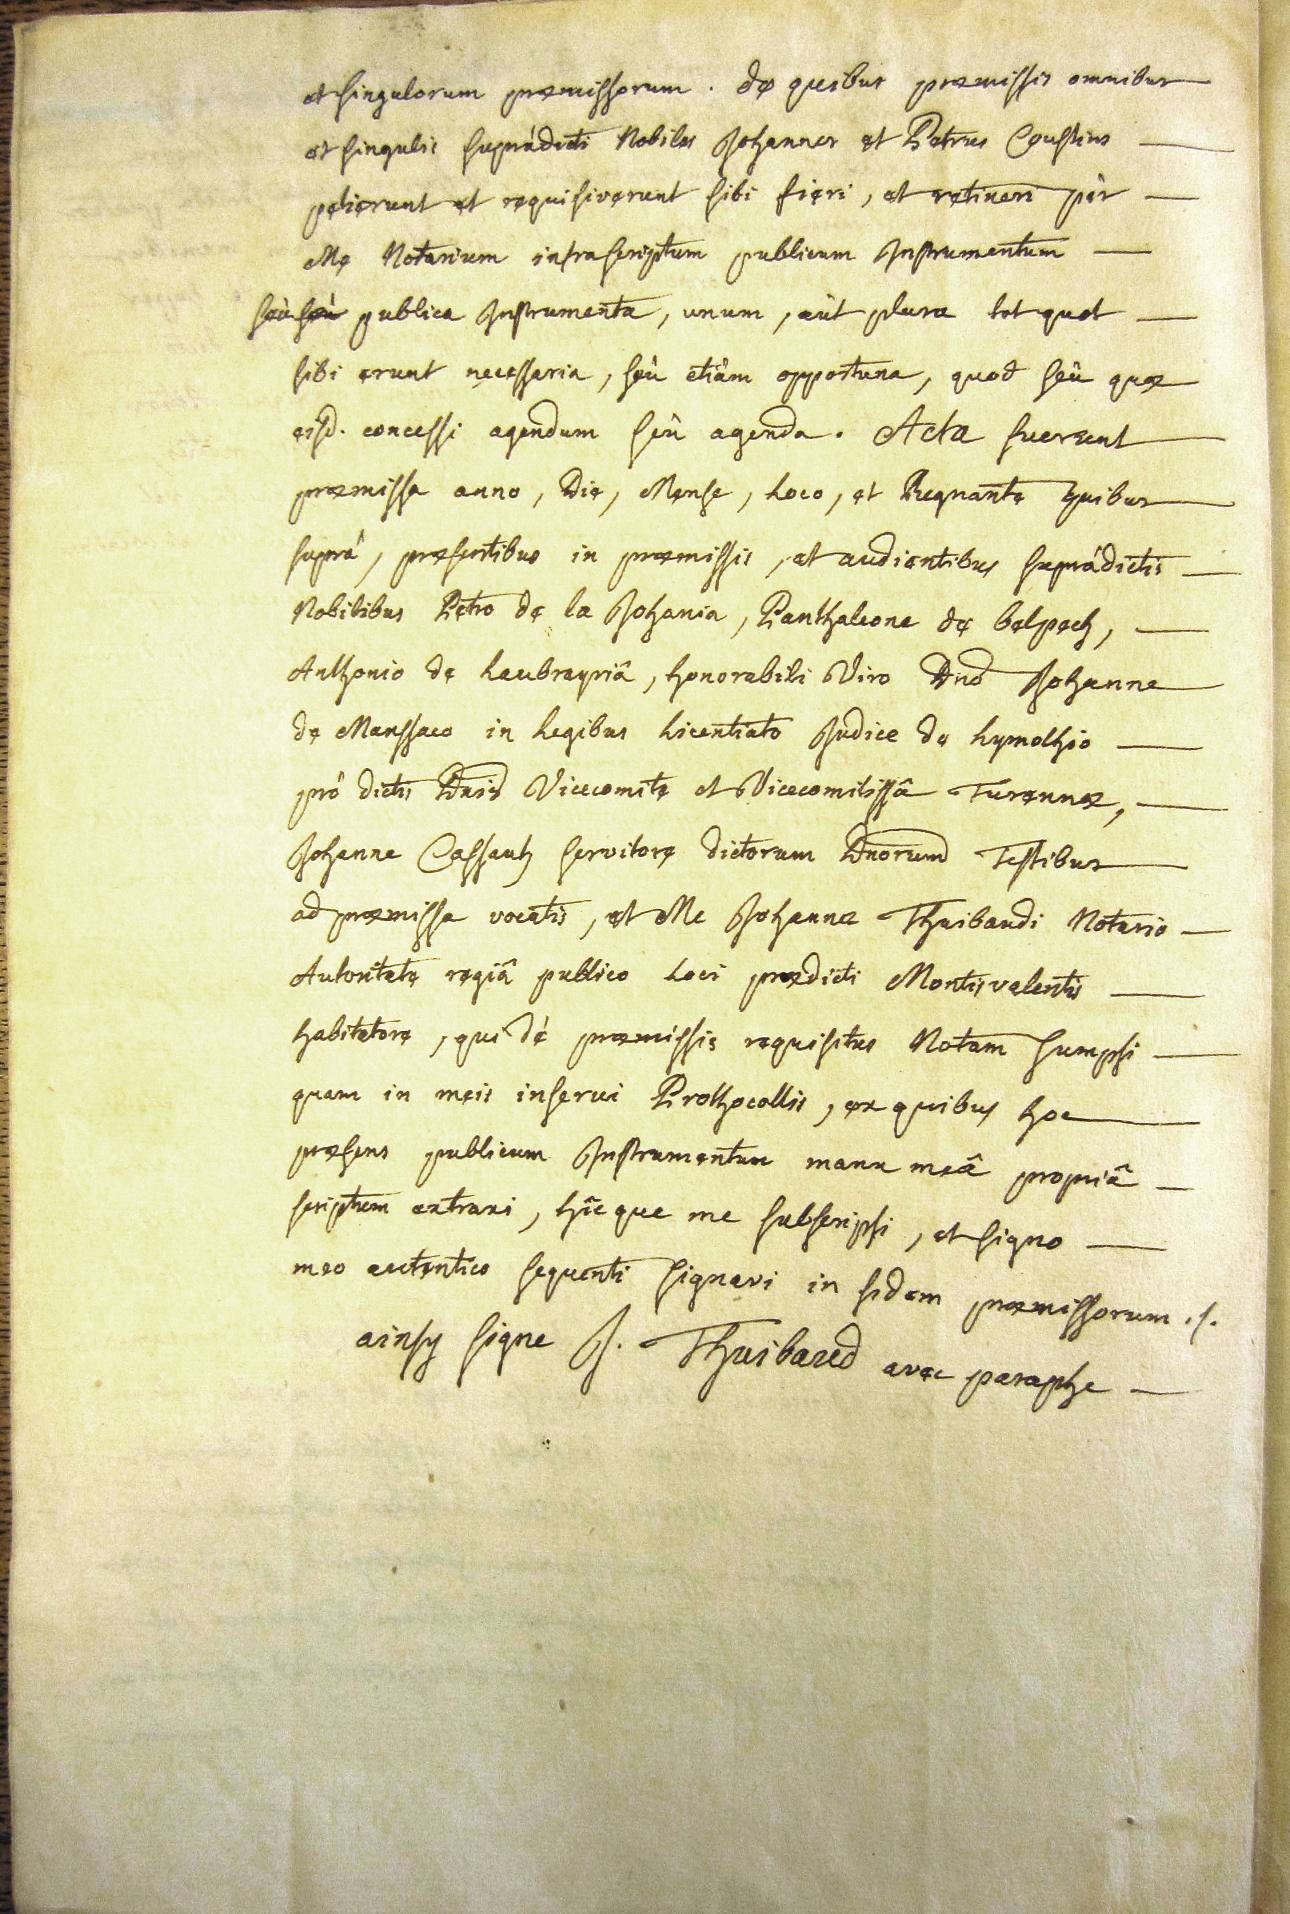 et singulorum præmissorum. de quibus præmissis omnibus
et singulis suprádicti Nobiles Johannes et Petrus Coustins
petierunt et requisiverunt sibi fieri, et retineri per
Me Notarium infrascriptum publicum Instrumentum
seù seù publica Instrumenta, unum, aüt plura tot quot
sibi erunt necessaria, seù etiâm opportuna, quod seù quæ
eisd. concessi agendum seù agenda. Acta fuerunt
præmissa anno, Die, Mense, Loco, et Regnante quibus
suprá, præsentibus in præmissis, et audientibus suprádictis
Nobilibus Petro de la Johania, Panthaleone de belpech,
Anthonio de Laubrayriâ, honorabili Viro Dno Johanne
de Manssaco in Legibus Licentiato Judice de Lymolhio
pró dictis Dnis Vicecomite et Vicecomitissâ Turennæ,
Johanne Cassautz servitore dictorum Dnorum Testibus
ad præmissa vocatis, et Me Johanne Thuibaudi Notario
Autoritate regiâ publico Loci prædicti Montisvalentis
habitatore, qui dé præmissis requisitus Notam sumpsi
quam in meis inserui Prothocollis, ex quibus hoc
præsens publicum Instrumentum manu meâ propriâ
scriptum extraxi, hîcque me subscripsi, et signo
meo autentico sequenti signavi in fidem præmissorum. s.
ainsy signe J. Thuibaud avec paraphe